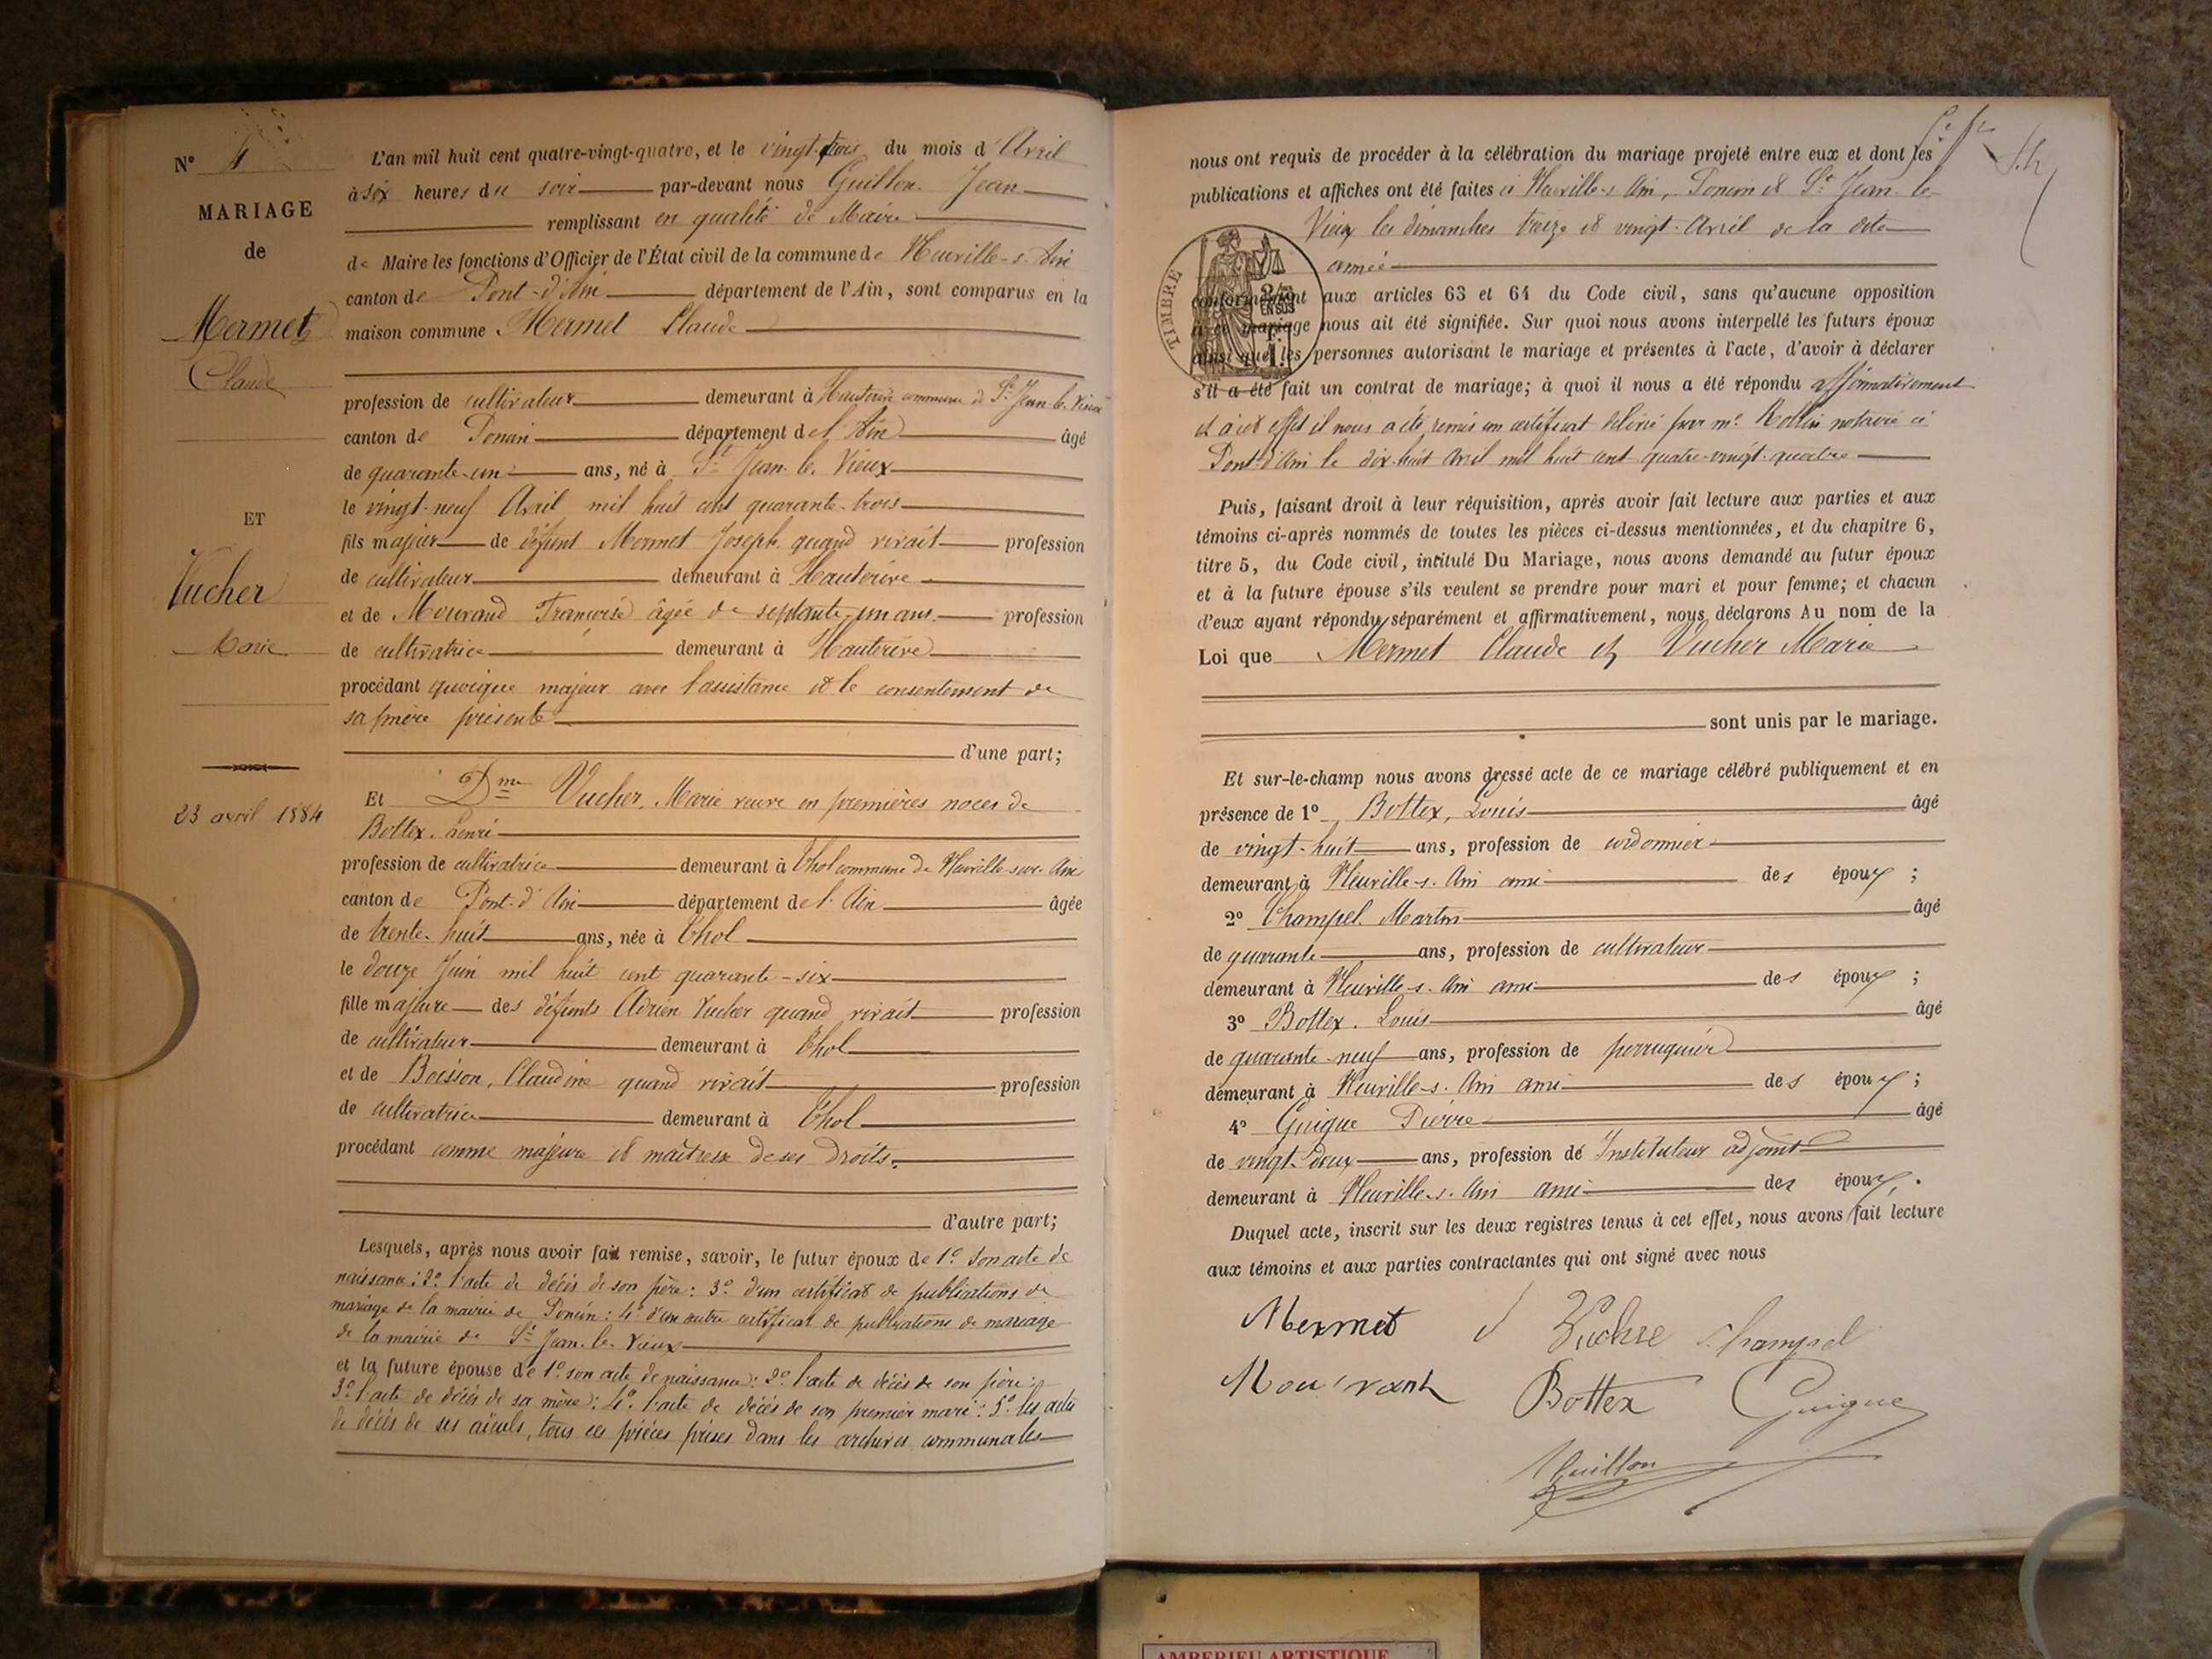 N° 4
MARIAGE
de
Mermet
Claude
ET
Vucher
Marie
23 avril 1884
L'an mil huit cent quatre-vingt-quatre, et le vingt-trois du mois d'Avril
à six heures du soir par-devant nous Guillon Jean
remplissant en qualité de Maire
de Maire les fonctions d'Officier de l'État civil de la commune de Neuville-s-Ain
canton de Pont-d'Ain département de l'Ain, sont comparus en la
maison commune Mermet Claude
profession de cultivateur demeurant à Hauterive commune de St Jean-le-Vieux
canton de Poncin département de l'Ain âgé
de quarante-un ans, né à St Jean-le-Vieux
le vingt-neuf Avril mil huit cent quarante-trois
fils majeur de défunt Mermet Joseph quand vivait profession
de cultivateur demeurant à Hauterive
et de Mourand Françoise âgée de septante-un ans profession
de cultivatrice demeurant à Hauterive
procédant quoique majeur avec l'assistance et le consentement de
sa mère présente
d'une part;
Et Dme Vucher, Marie veuve en premières noces de
Bottex henri
profession de cultivatrice demeurant à Thol commune de Neuville-sur-Ain
canton de Pont-d'Ain département de l'Ain âgée
de trente-huit ans, née à Thol
le douze Juin mil huit cent quarante-six
fille majeure des défunts Adrien Vucher quand vivait profession
de cultivateur demeurant à Thol
et de Boisson, Claudine quand vivait profession
de cultivatrice demeurant à Thol
procédant comme majeure et maîtresse de ses droits.
d'autre part;
Lesquels, après nous avoir fait remise, savoir, le futur époux de 1° son acte de
naissance: 2° l'acte de décès de son père: 3° d'un certificat de publications de
mariage de la mairie de Poncin: 4° d'un autre certificat de publications de mariage
de la mairie de St Jean-le-Vieux
et la future épouse de 1° son acte de naissance: 2° l'acte de décès de son père:
3° l'acte de décès de sa mère: 4° l'acte de décès de son premier mari: 5° les actes
de décès de ses aïeuls, tous ces pièces prises dans les archives communales
nous ont requis de procéder à la célébration du mariage projeté entre eux et dont les
publications et affiches ont été faites à Neuville-s-Ain, Poncin et St Jean-le-
Vieux les dimanches treize et vingt Avril de la dite
année
TIMBRE
conformément aux articles 63 et 64 du Code civil, sans qu'aucune opposition
à ce mariage nous ait été signifiée. Sur quoi nous avons interpellé les futurs époux
ainsi que les personnes autorisant le mariage et présentes à l'acte, d'avoir à déclarer
s'il a été fait un contrat de mariage; à quoi il nous a été répondu affirmativement
et à cet effet il nous a été remis un certificat délivré par me Rollin notaire à
Pont-d'Ain le dix-huit avril mil huit cent quatre-vingt-quatre
Puis, faisant droit à leur réquisition, après avoir fait lecture aux parties et aux
témoins ci-après nommés de toutes les pièces ci-dessus mentionnées, et du chapitre 6,
titre 5, du Code civil, intitulé Du Mariage, nous avons demandé au futur époux
et à la future épouse s'ils veulent se prendre pour mari et pour femme; et chacun
d'eux ayant répondu séparément et affirmativement, nous déclarons Au nom de la
Loi que Mermet Claude et Vucher Marie
sont unis par le mariage.
Et sur-le-champ nous avons dressé acte de ce mariage célébré publiquement et en
présence de 1° Bottex, Louis âgé
de vingt-huit ans, profession de cordonnier
demeurant à Neuville-s-Ain ami des époux;
2° Champel Martin âgé
de quarante ans, profession de cultivateur
demeurant à Neuville-s-Ain ami des époux;
3° Bottex Louis âgé
de quarante-neuf ans, profession de perruquier
demeurant à Neuville-s-Ain ami des époux;
4° Guigue Pierre âgé
de vingt-deux ans, profession de Instituteur adjoint
demeurant à Neuville-s-Ain ami des époux.
Duquel acte, inscrit sur les deux registres tenus à cet effet, nous avons fait lecture
aux témoins et aux parties contractantes qui ont signé avec nous
Mermet Champel
Bottex Guigue
Guillon
AMBERIEU ARTISTIQUE